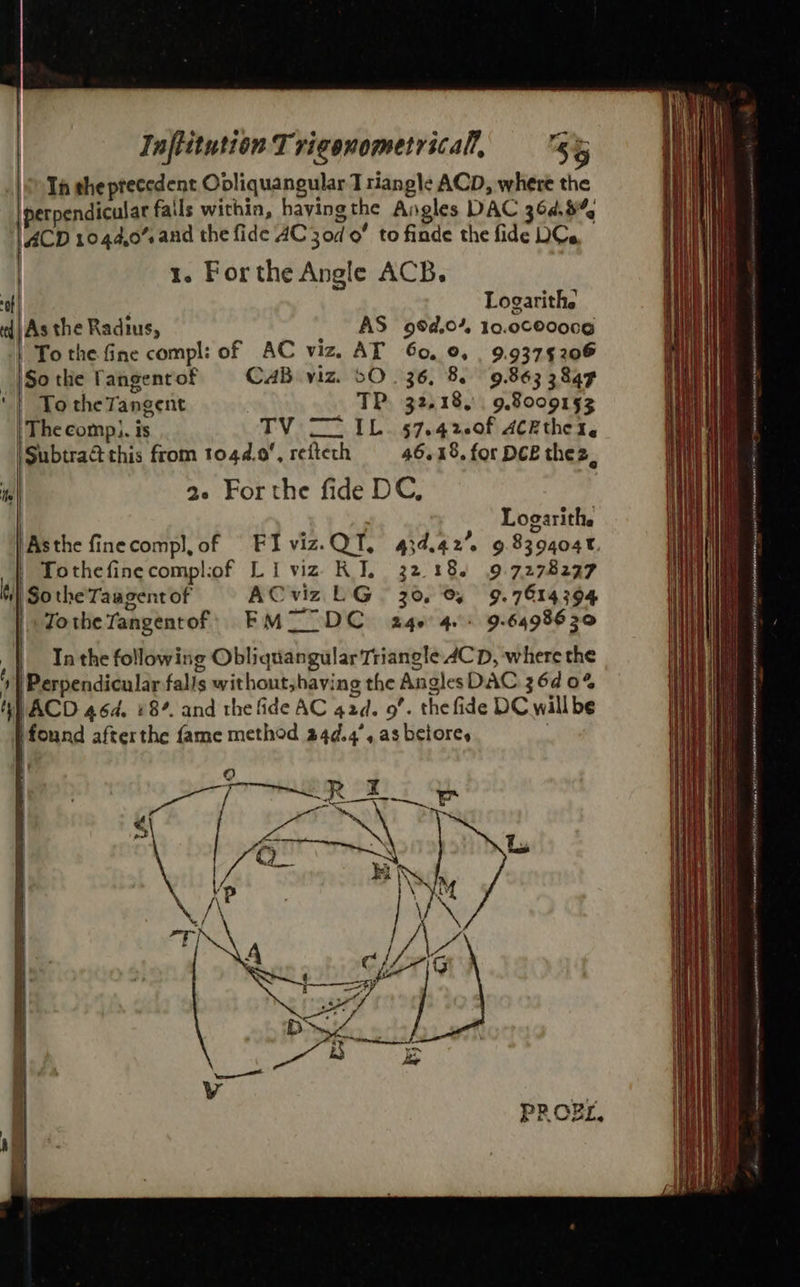 Inſtitution Trigonometricall, 55
In the precedent Obliquangular Triangle ACD, where the
perpendicular falls within, having the Angles DAC 36d.8',
ACD 104d,0', and the ſide AC 30d 0' to finde the ſide DC.
1. For the Angle ACB.
Logarith.
As the Radius, AS 90d.0', 10.0000000
To the ſine compl: of AC viz. AT 60. 0, 9.9375306
So the Tangent of CAB viz. SO 36. 8. 9.8633847
To the Tangent TP 32,18, 9.8009153
The compl. is TV == IL 57.42.of ACE the 1.
Subtract this from 104d.0', reſteth 46.18. for DCE the 2.
2. For the ſide DC.
Logarith.
As the ſine compl, of FI viz. QT, 43d.42'. 9.8394041.
To the ſine compl: of LI viz. RI, 32.18. 9.7278277
So the Tangent of AC viz LG 30. 0, 9.7614394
To the Tangent of FM == DC 24. 4. 9.6498630
In the following Obliquangular Triangle ACD, where the
Perpendicular falls without, having the Angles DAC 36d 0',
ACD 46d. 18'. and the ſide AC 42d. 9'. the ſide DC will be
found after the ſame method 24d.4', as before,
O R I F
S L
Q H
P M
T A C G
D
B E
V
PROBL.